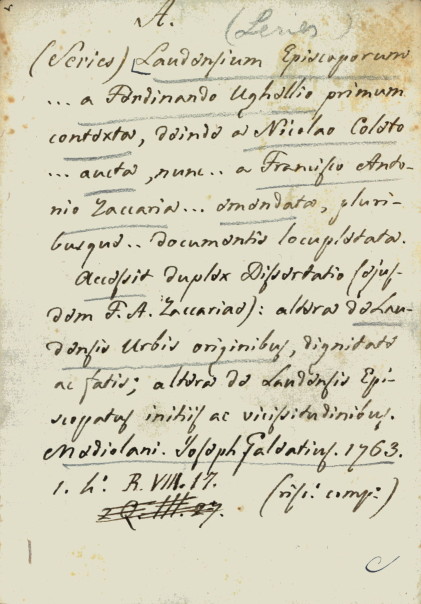 A. (Series)
(Series) Laudensium Episcoporum
... a Ferdinando Ughellio primum
contexta, deinde a Nicolao Coleto
... aucta, nunc .. a Francisco Anto-
nio Zaccaria ... emendata, pluri-
busque .. documentis locupletata.
Accessit duplex Dissertatio (ejus-
dem F. A. Zaccariae): altera de Lau-
densis Urbis originibus, dignitate
ac fatis; altera de Laudensis Epi-
scopatus initiis ac vicissitudinibus.
Mediolani. Joseph Galeatius. 1763.
1. h. R. VIII. 17.